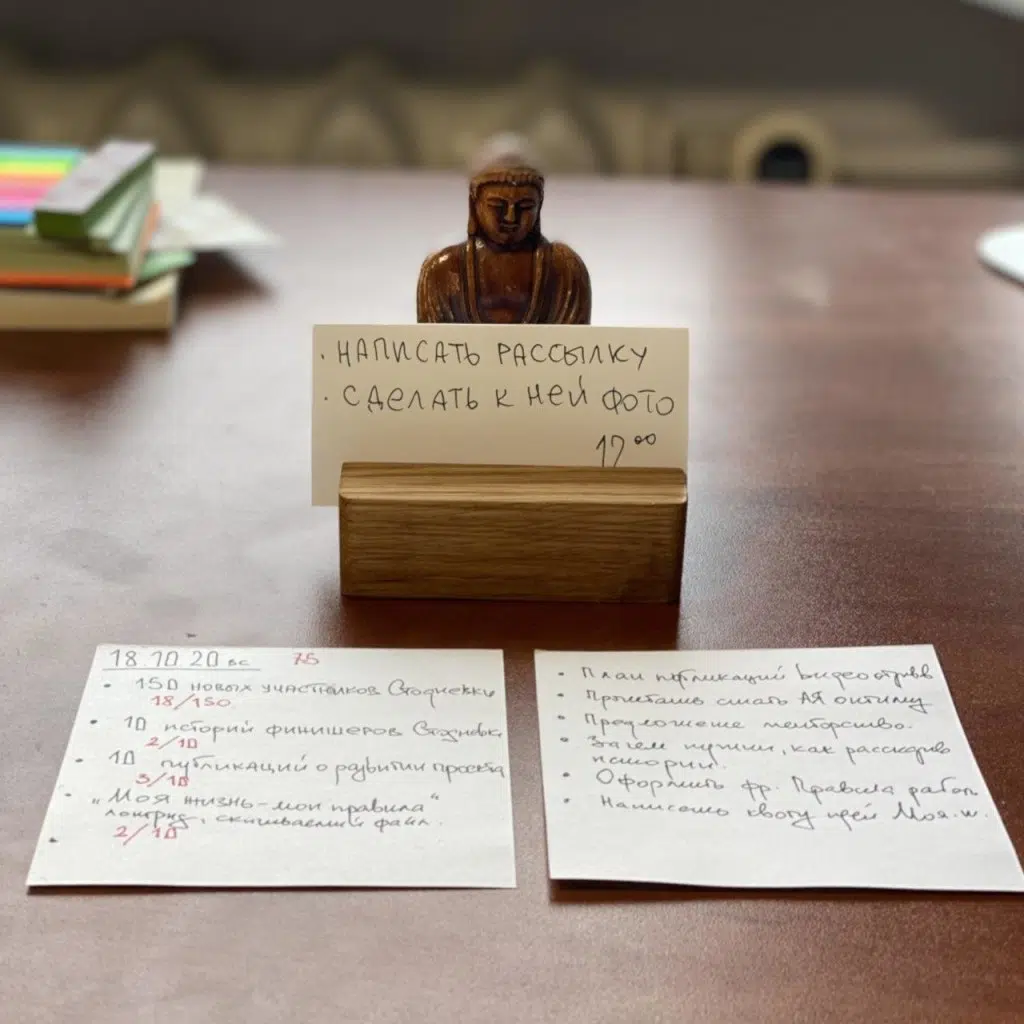 · НАПИСАТЬ РАССЫЛКУ
· СДЕЛАТЬ К НЕЙ ФОТО
17 00
18.10.20 вс 75
· 150 новых участников Стодневки
18/150
· 10 историй финишеров Стодневки
2/10
· 10 публикаций о развитии проекта
3/10
· "Моя жизнь – мои правила"
лонгрид, скачиваемый файл.
2/10
· План публикаций видеоотзывов
· Прочитать
· Предложение менторство.
· Зачем нужны, как рассказыв
истории.
· Оформить фр. Правила работы
· Написать идей Моя.ж.